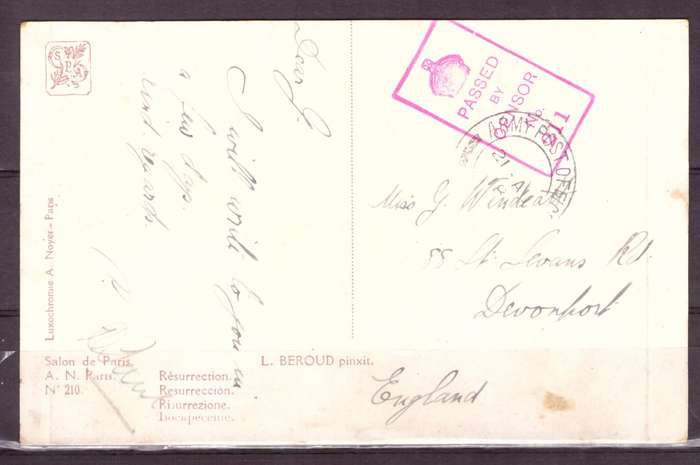 S.P.A.
Dear G.
I will write to you in
a few days.
Kind regards.
PASSED
BY
CENSOR
No.
ARMY POST OFFICE
Miss G. Windeatt
88 St. Levans Rd.
Devonport
England
Luxochromie A. Noyer - Paris
Salon de Paris.
A. N. Paris.
N° 210.
L. BEROUD pinxit.
Rèsurrection.
Resurrección.
Risurrezione.
Воскресение.